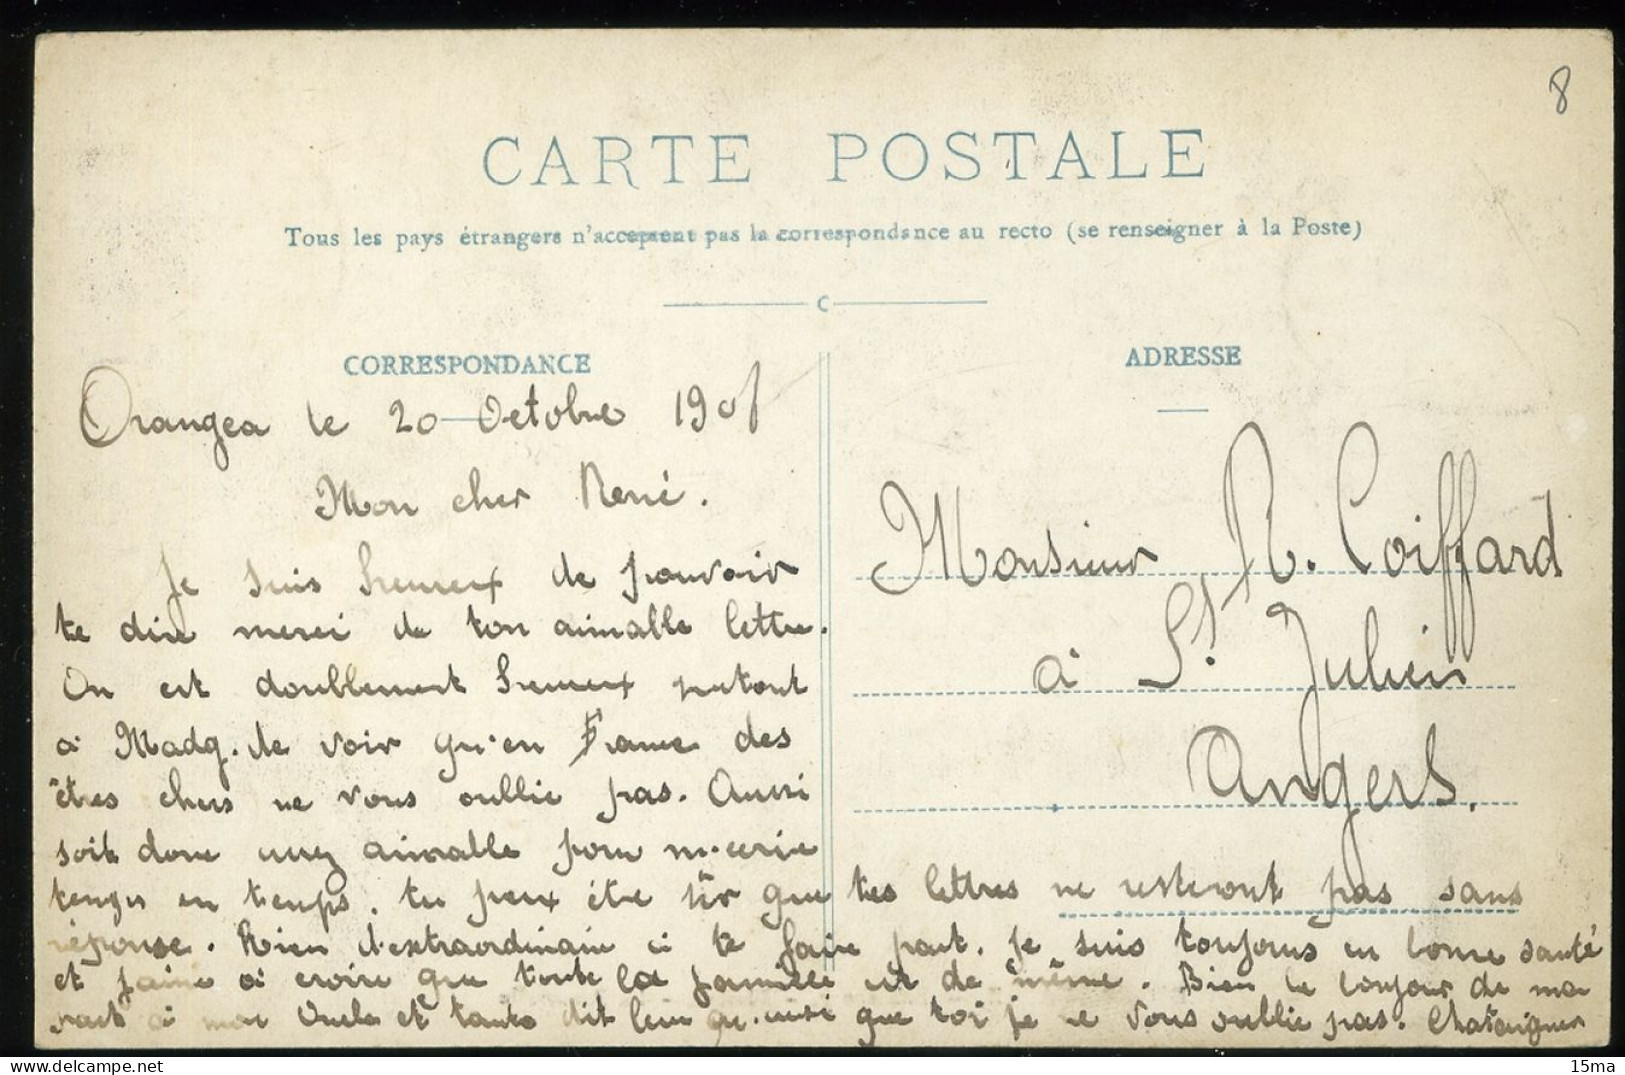 8
CARTE POSTALE
Tous les pays étrangers n'acceptent pas la correspondance au recto (se renseigner à la Poste)
C
CORRESPONDANCE
Orangea le 20 Octobre 190
Mon cher René.
Je suis heureux de pouvoir
te dire merci de ton aimable lettre.
On est doublement heureux surtout
à Madg. de voir qu'en France des
êtres chers ne vous oublie pas. Aussi
soit donc assez aimable pour m'ecrire
temps en temps. tu peux être sûr que tes lettres ne resteront pas sans
réponse. Rien d'extraordinaire ici te faire part. Je suis toujours en bonne santé
et j'aime à croire que toute la famille est de même. Bien le bonjour de ma
part à mon Oncle et tante dit leur qu'aussi que toi je ne vous oublie pas. Chataigner
ADRESSE
Monsieur R. Coiffard
à St. Julien
Angers.
15ma